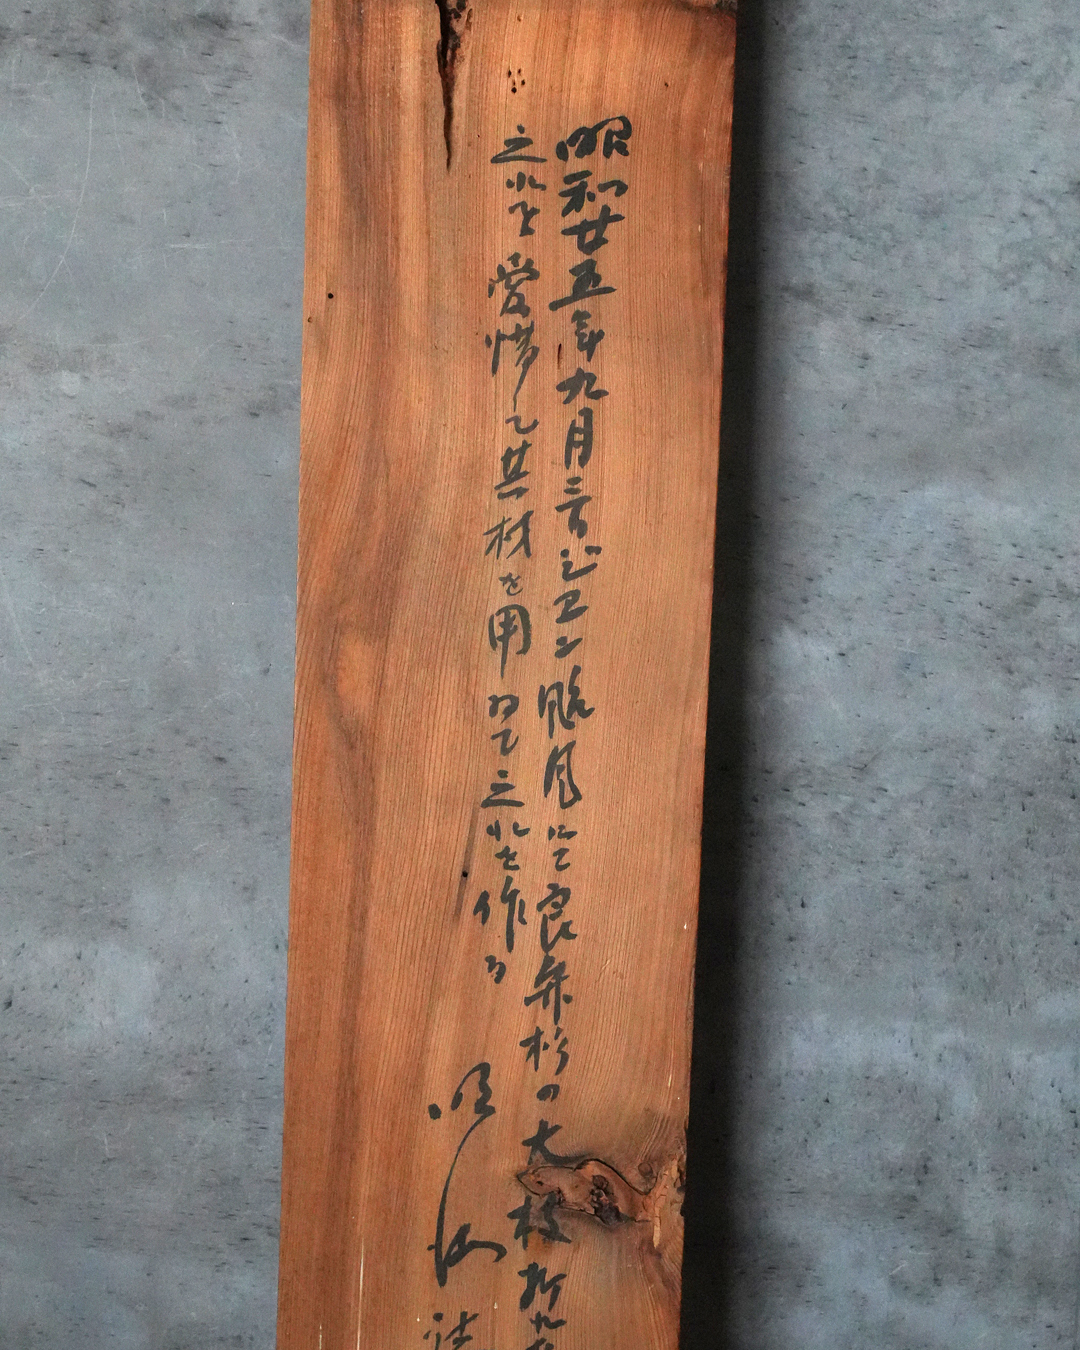 昭和廿五年九月三日ジェン颱風にて良弁杉の大枝折れた
之れを愛惜して其材を用ゐて之れを作る
明海